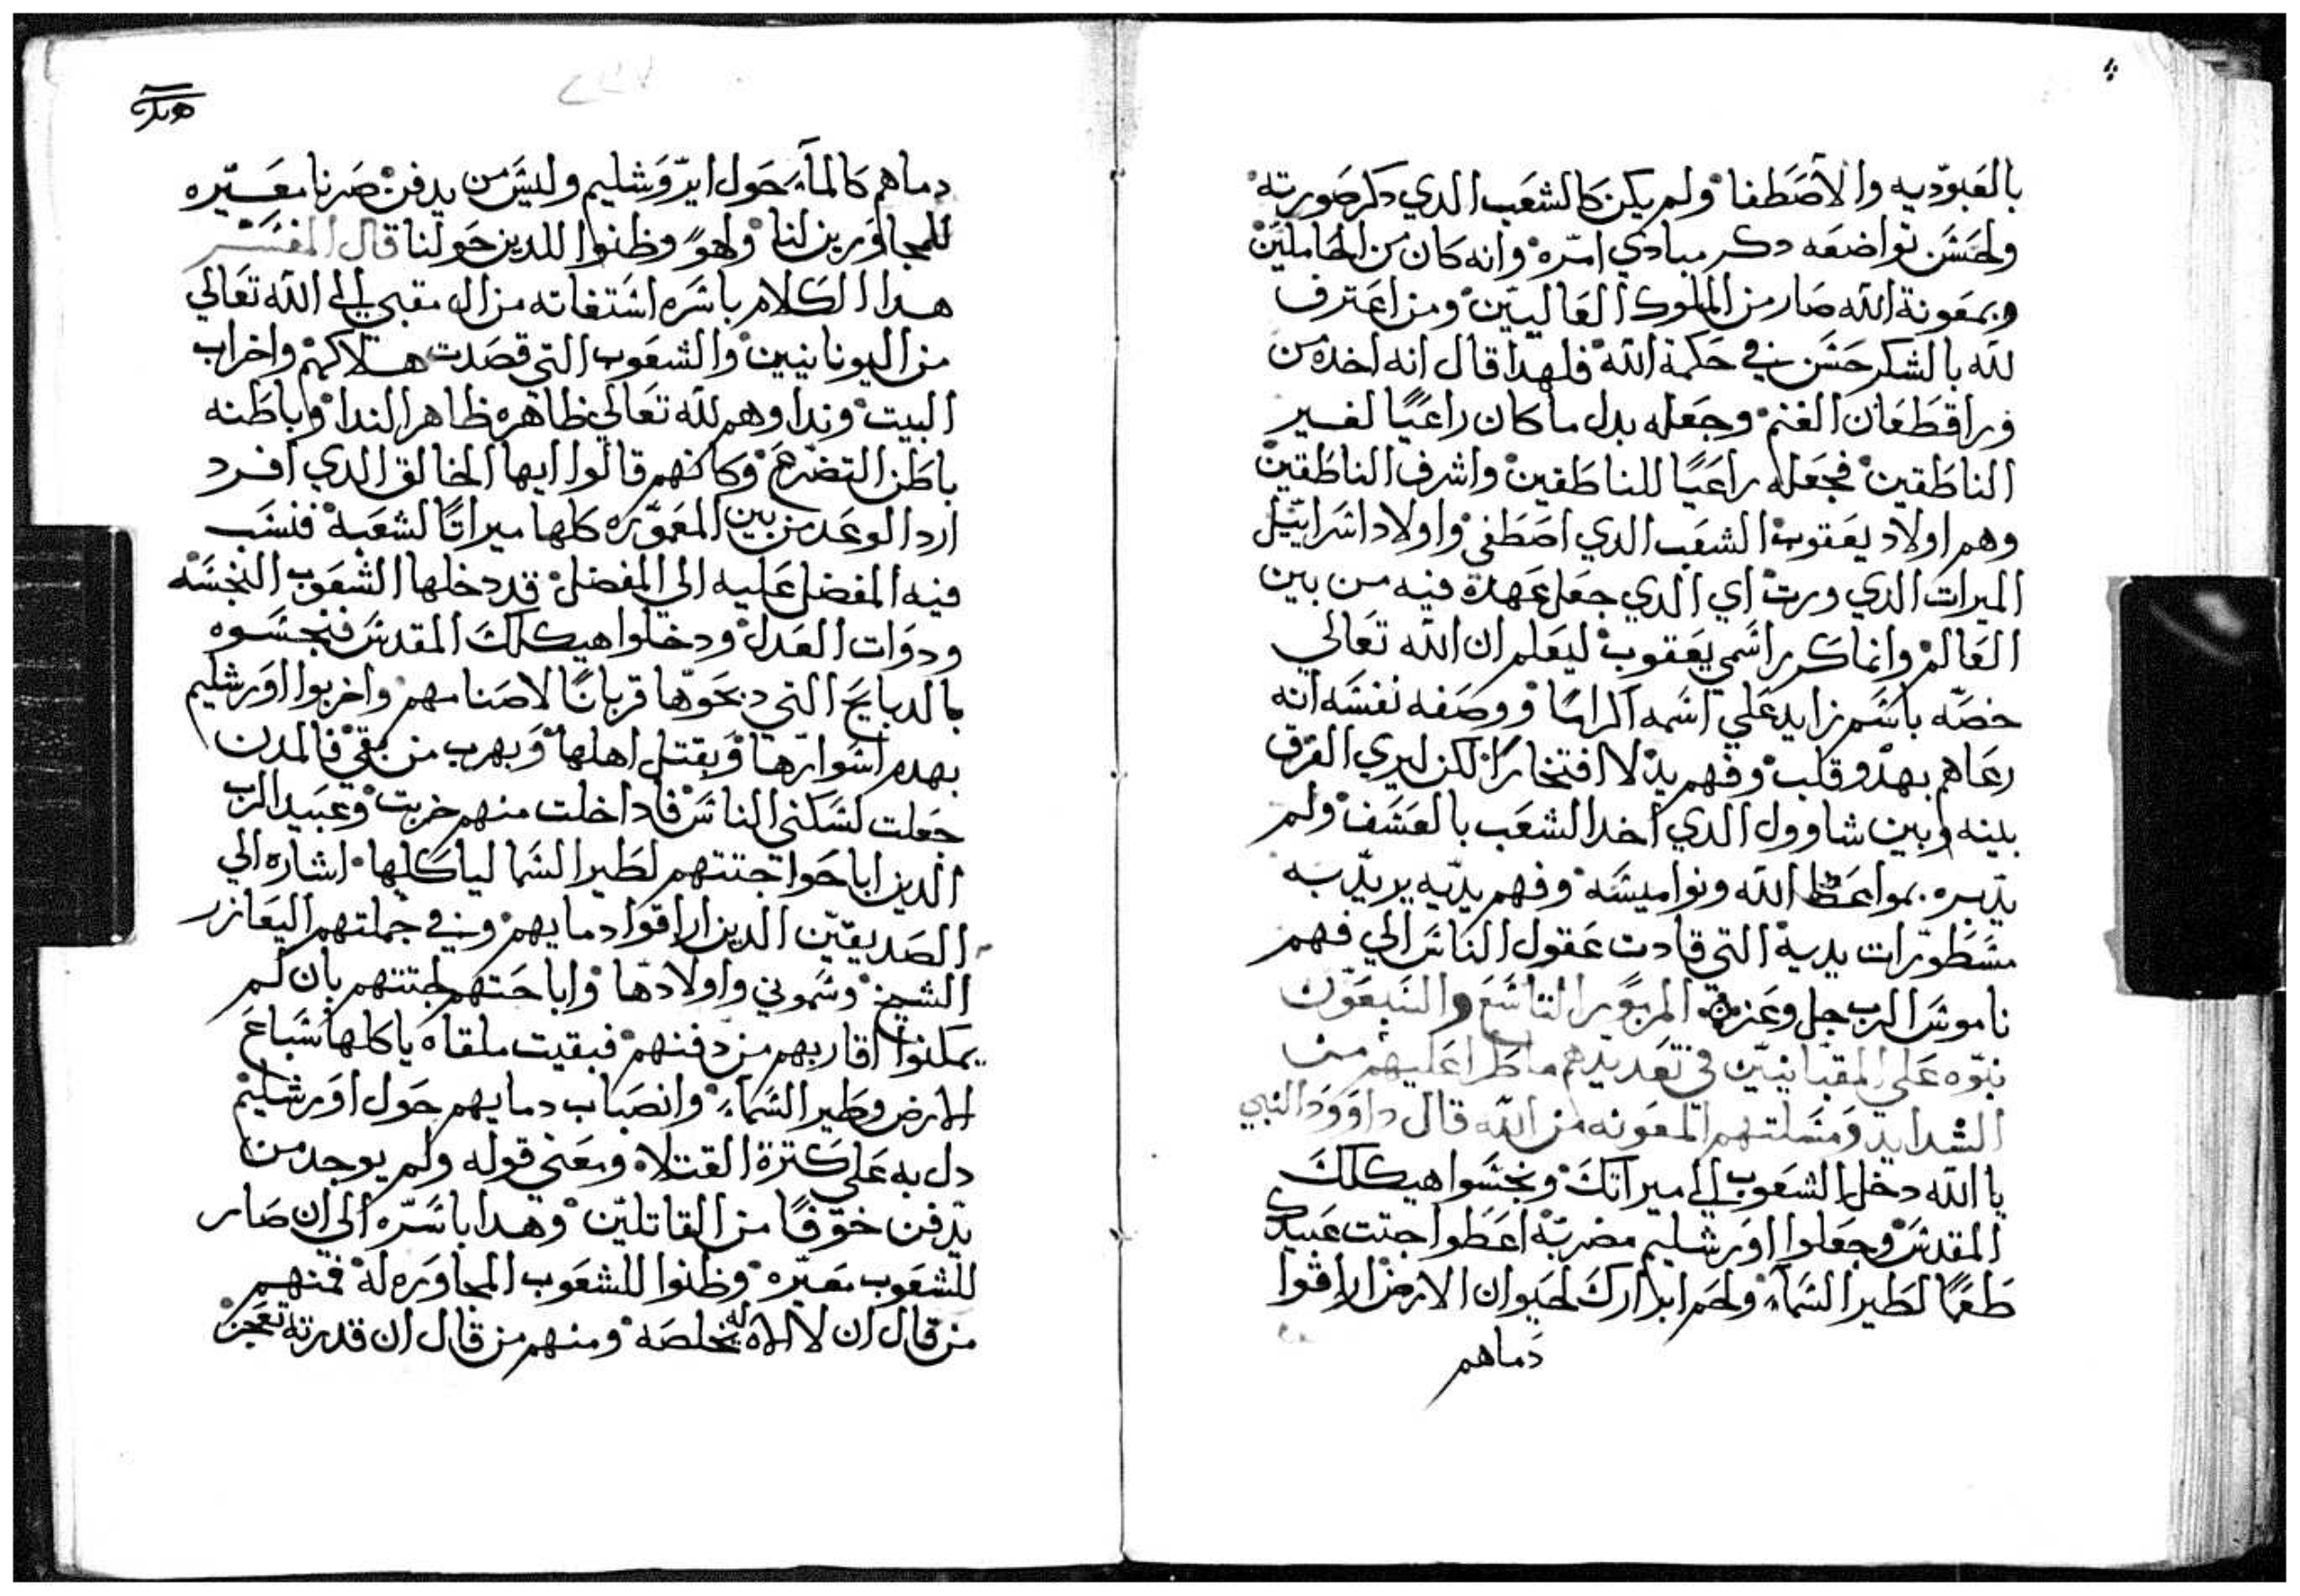 بالعبوديه والاصطفا ولم يكن كالشعب الدي دكر صورته
ولحسن تواضعه دكر مبادي امره وانه كان من الحاملين
وبمعونة الله صار من الملوك العاليين ومن اعترف
لله بالشكر حسن في حكمة الله فلهدا قال انه اخده من
ورا قطعان الغنم وجعله بدل ما كان راعيًا لغير
الناطقين فجعله راعيًا للناطقين واشرف الناطقين
وهم اولاد يعقوب الشعب الدي اصطفي واولاد اسراييل
الميرات الدي ورت اي الدي جعل عهدة فيه من بين
العالم وانما كرر اسمي يعقوب ليعلم ان الله تعالي
خصه باسم زايد علي اسمه اكرامًا ووصفه نفسه انه
رعاهم بهدو قلب وفهم يد لا افتخارًا لكن ليري الفرق
بينه وبين شاوول الدي اخد الشعب بالعسف ولم
يدبره بمواعظ الله ونواميسه وفهم يديه يريد به
مسطورات يديه التي قادت عقول الناس الي فهم
ناموس الرب جل وعز المزمور التاسع والسبعون
نبوه علي المقبانيين في تعديدهم ما طرا عليهم من
الشدايد ومسلتهم المعونه من الله قال داوود النبي
يا الله دخل الشعوب الي ميراتك ونجسوا هيكلك
المقدس وجعلوا اورشليم مخربه اعطوا جتت عبيدك
طعمًا لطير السماء ولحم ابرارك لحيوان الارض اراقوا
دماهم
دماهم كالماء حول ايروشليم وليس من يدفن صرنا معيره
للمجاورين لنا ولهوً وظنوا للدين حولنا قال المفسر
هدا الكلام باسره استغاته من ال مقبي الي الله تعالي
من اليونانيين والشعوب التي قصدت هلاكهم واخراب
البيت ونداوهم لله تعالي ظاهره ظاهر الندا وباطنه
باطن التضرع وكانهم قالوا ايها الخالق الدي افرد
ارد الوعد من بين المعموره كلها ميراتًا لشعبه فنسب
فيه المفضل عليه الي المفضل قد دخلها الشعوب النجسه
ودوات العدل ودخلوا هيكلك المقدس فنجسوه
بالدبايح التي دبحوها قربانًا لاصنامهم واخربوا اورشليم
بهدم اسوارها وبقتل اهلها وبهرب من بقي فالمدن
جعلت لسكني الناس فادا خلت منهم خربت وعبيد الرب
الدين اباحوا جتتهم لطير السما لياكلها اشاره الي
الصديقين الدين اراقوا دمايهم وفي جملتهم اليعازر
الشيخ وسموني واولادها واباحتهم لجتتهم بان لم
يمكنوا اقاربهم من دفنهم فبقيت ملقاه ياكلها سباع
الارض وطير السماء وانصباب دمايهم حول اورشليم
دل به علي كترة القتلاه ومعني قوله ولم يوجد من
يدفن خوفًا من القاتلين وهدا باسره الي ان صار
للشعوب معيره وظنوا للشعوب المجاوره له فمنهم
من قال ان لا الاه له يخلصه ومنهم من قال ان قدرته تعجز